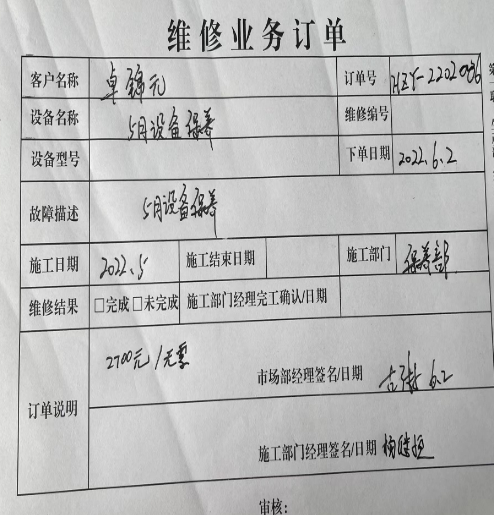 维修业务订单
客户名称 卓锦元 订单号 HZY-2202006
设备名称 5月设备保养 维修编号
设备型号 下单日期 2022.6.2
故障描述 5月设备保养
施工日期 2022.5 施工结束日期 施工部门 保养部
维修结果 □完成 □未完成 施工部门经理完工确认/日期
2700元/无票
市场部经理签名/日期 6.2
订单说明
施工部门经理签名/日期
审核:
第